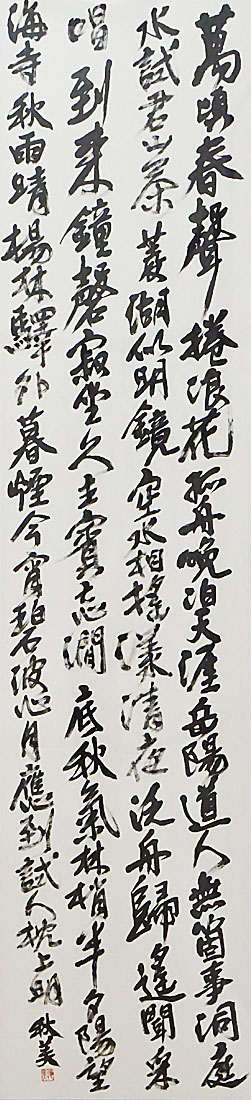 萬頃春聲捲浪花孤舟晚泊天涯岳陽道人無箇事洞庭
水試君山茶菱湖似明鏡空水相搖漾清夜泛舟歸遙聞采
唱到来鐘磬寂坐久主賓忘澗底秋氣林梢半夕陽望
海寺秋雨晴楊林驛外暮煙今宵碧波心月應到試人枕上明秋美